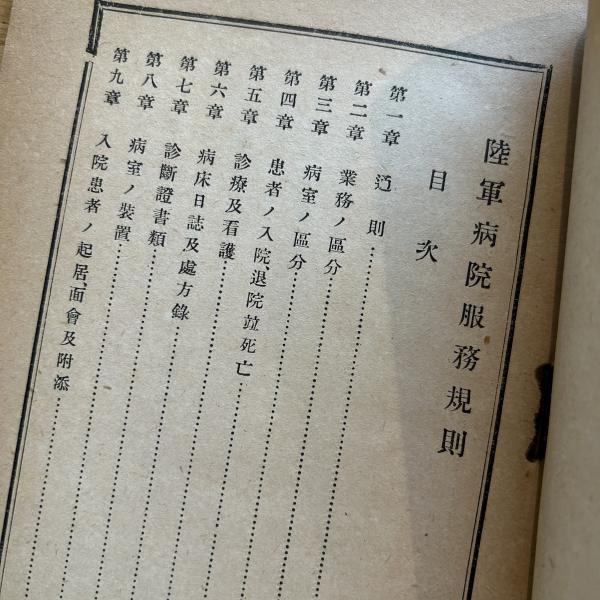 陸軍病院服務規則
目次
第一章 通則
第二章 業務ノ區分
第三章 病室ノ區分
第四章 患者ノ入院、退院竝死亡
第五章 診療及看護
第六章 病床日誌及處方錄
第七章 診斷證書類
第八章 病室ノ裝置
第九章 入院患者ノ起居、面會及附添